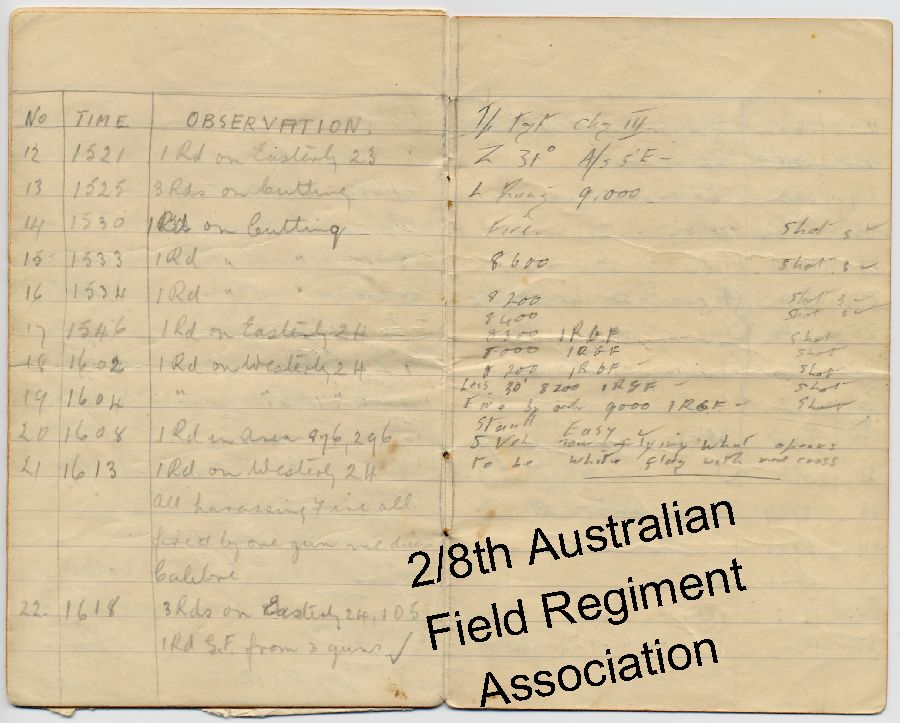 No TIME OBSERVATION.
12 1521 1 Rd on Easterly 23
13 1525 3 Rds on Cutting
14 1530 1 Rd on Cutting
15 1533 1 Rd " "
16 1534 1 Rd " "
17 1546 1 Rd on Easterly 24
18 1602 1 Rd on Westerly 24
19 1604 " " " "
20 1608 1 Rd in area 976, 296
21 1613 1 Rd on Westerly 24
All harassing Fire all
fired by one gun
Calibre
22. 1618 3 Rds on Easterly 24, 105
1 Rd G.F. from 3 guns ✓
Tgt chg III
Z 31° A/s 5'E -
9,000
Fire. Shot
8600 Shot
8200 Shot
8400 Shot
8300 1 RGF Shot
8000 1RGF Shot
8200 1RGF Shot
Less 30' 8200 1RGF - Shot
Fire by order 9000 1RGF - Shot
Stand Easy
5 Veh now flying what appears
to be white flag with red cross
2/8th Australian
Field Regiment
Association